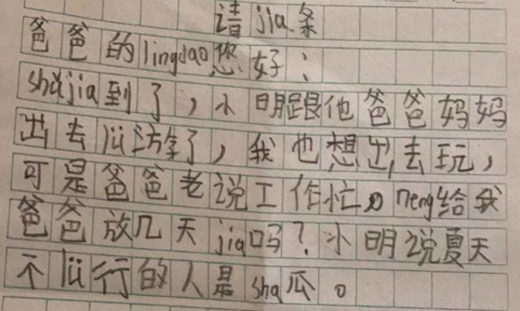 请jia条
爸爸的lingdao您好：
shǔjia到了，小明跟他爸爸妈妈
出去lǚ游学了，我也想出去玩，
可是爸爸老说工作忙。neng给我
爸爸放几天jia吗？小明说夏天
不lǚ行的人是sha瓜。